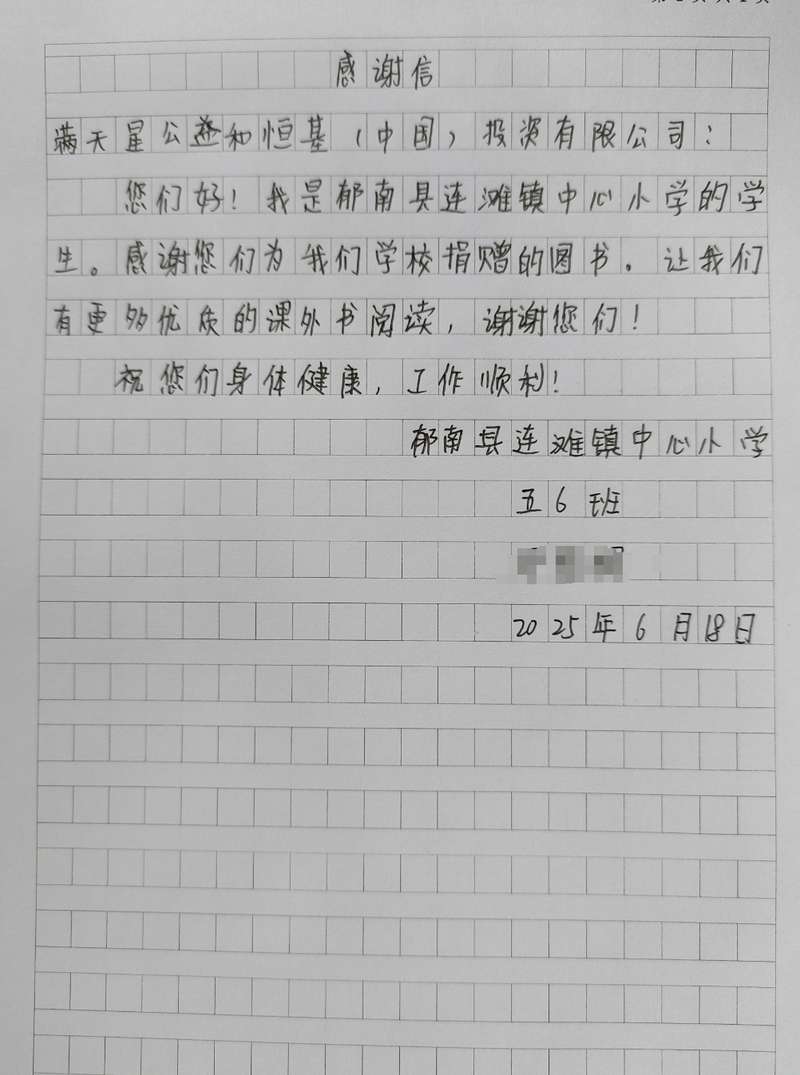 感谢信
满天星公益和恒基（中国）投资有限公司：
您们好！我是郁南县连滩镇中心小学的学
生。感谢您们为我们学校捐赠的图书。让我们
有更多优质的课外书阅读，谢谢您们！
祝您们身体健康，工作顺利！
郁南县连滩镇中心小学
五6班
2025年6月18日